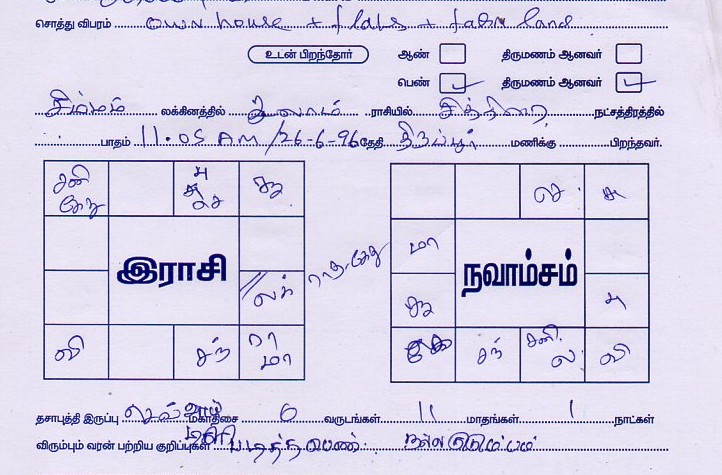 சொத்து விபரம் own house + flats + farm land
உடன் பிறந்தோர் ஆண் திருமணம் ஆனவர்
பெண் ✓ திருமணம் ஆனவர் ✓
சிம்மம் லக்கினத்தில் துலாம் ராசியில் சித்திரை நட்சத்திரத்தில்
பாதம் 11.05 AM /26-6-96 தேதி திருப்பூர் மணிக்கு பிறந்தவர்.
சனி கேது பு செ சூ
இராசி
லக்
வி சந் ரா மா
ராகு கேது
செ சு
மா
நவாம்சம்
சூ பு
கே சந் சனி ல வி
தசாபுத்தி இருப்பு செவ்வாய் மகாதிசை 0 வருடங்கள் 11 மாதங்கள் 1 நாட்கள்
விரும்பும் வரன் பற்றிய குறிப்புகள் டிகிரி படித்த பெண். நல்ல குடும்பம்